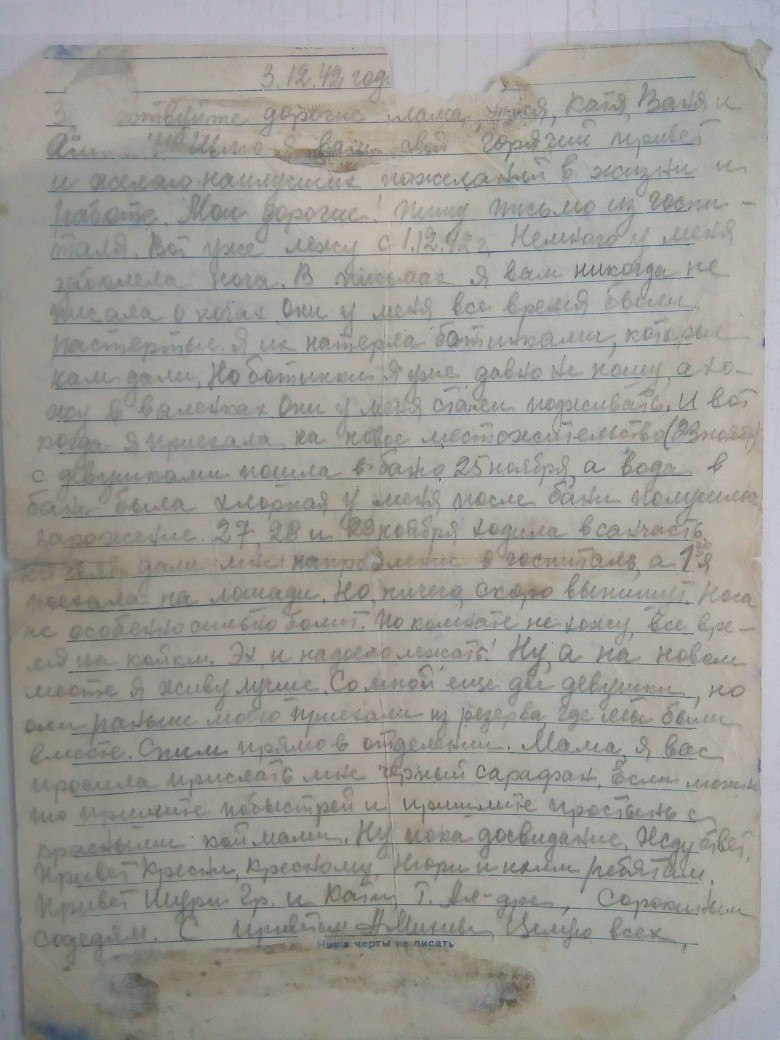 3.12.42 год
дорогие мама, Катя, Ваня и
Шлю я вам свой горячий привет
и желаю наилучших пожеланий в жизни и
работе. Мои дорогие! Пишу письмо из госпи-
таля. Вот уже лежу с 1.12.42 г. Немного у меня
заболела нога. В письмах я вам никогда не
писала о ногах. Они у меня все время были
растертые. Я их натерла ботинками, которые
нам дали. Но ботинки я уже давно не ношу, а хо-
жу в валенках. Они у меня стали подживать. И вот
когда я приехала на новое местожительство (23 ноября)
с девушками пошла в баню 25 ноября, а вода в
бане была хлорная у меня после бани получилось
заражение. 27, 28 и 29 ноября ходила в санчасть,
дали мне направление в госпиталь, а 1го я
поехала на лошади. Но ничего, скоро выпишут. Нога
не особенно сильно болит. По комнате не хожу, все вре-
мя на койке. Эх, и надоело лежать! Ну, а на новом
месте я живу лучше. Со мной еще две девушки, но
они раньше моего приехали из резерва, где мы были
вместе. Спим прямо в отделении. Мама, я вас
просила прислать мне черный сарафан. Если можно
то пришлите побыстрей и пришлите простынь с
красными коймами. Ну пока досвидание. Жду ответ.
Привет Крестн, крестному, Нюри и ихим ребятам.
Привет Шури Гр. и Кати, Т. Ал-дре, Сорокиным
соседям. С приветом А. Целую всех.
Ниже черты не писать